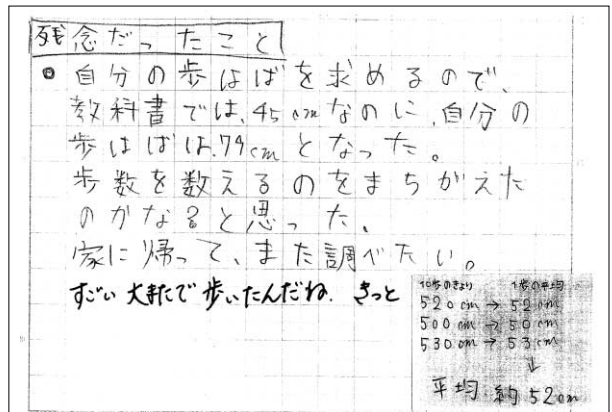 残念だったこと
◎ 自分の歩はばを求めるので、
教科書では、45cmなのに、自分の
歩はばは、79cmとなった。
歩数を数えるのをまちがえた
のかな?と思った。
家に帰って、また調べたい。
すごい 大またで 歩いたんだね. きっと
10歩のきょり 1歩の平均
520cm → 52cm
500cm → 50cm
530cm → 53cm
↓
平均 約52cm